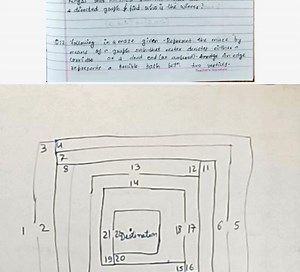 a directed graph & find who is the winner?
Q12. Following is a maze given. Represent the maze by
means of a graph such that vertex denotes either a
corridor or a dead end (as numbered). An edge
represents a possible path bet^n two vertices.
3 4
7
8 13 12 11
14
1 2 21 22 Destination 18 17 6 5
19 20
15 16